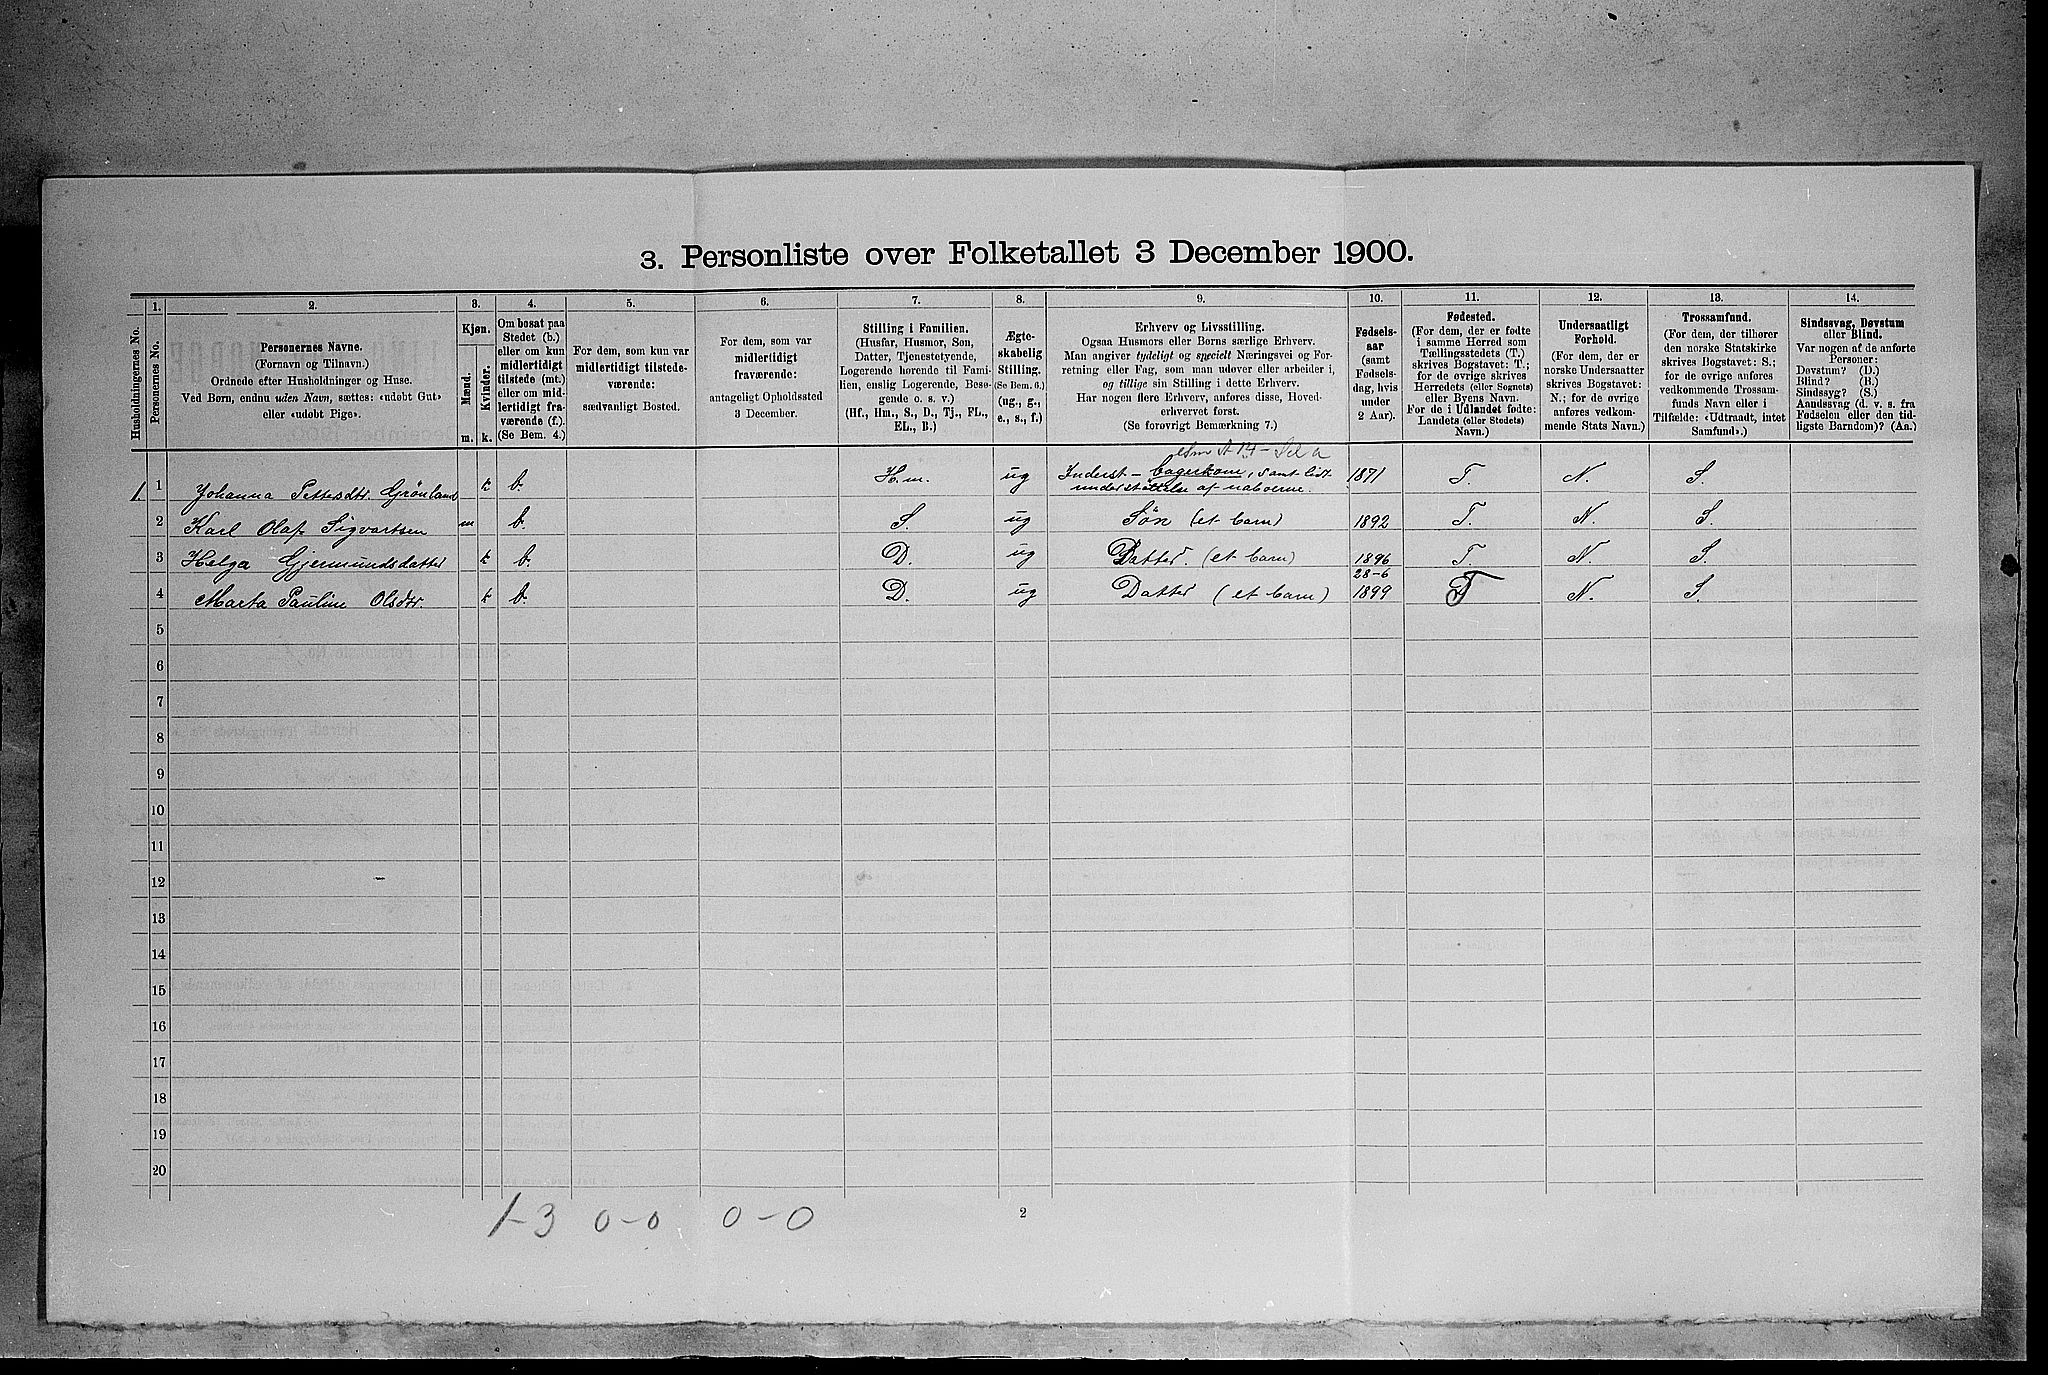 3. Personliste over Folketallet 3 December 1900.
1. 2. 3. 4. 5. 6. 7. 8. 9. 10. 11. 12. 13. 14.
Husholdningernes No.
Personernes No.
Personernes Navne.
(Fornavn og Tilnavn.)
Ordnede efter Husholdninger og Huse.
Ved Børn, endnu uden Navn, sættes: «udøbt Gut»
eller «udøbt Pige».
Kjøn.
Mænd.
Kvinder.
m. k.
Om bosat paa
Stedet (b.)
eller om kun
midlertidigt
tilstede (mt.)
eller om mid-
lertidigt fra-
værende (f.).
(Se Bem. 4.)
For dem, som kun var
midlertidigt tilstede-
værende:
sædvanligt Bosted.
For dem, som var
midlertidigt
fraværende:
antageligt Opholdssted
3 December.
Stilling i Familien.
(Husfar, Husmor, Søn,
Datter, Tjenestetyende,
Logerende hørende til Fami-
lien, enslig Logerende, Besø-
gende o. s. v.)
(Hf., Hm., S., D., Tj., FL.,
EL., B.)
Ægte-
skabelig
Stilling.
(Se Bem. 6.)
(ug., g.,
e., s., f.)
Erhverv og Livsstilling.
Ogsaa Husmors eller Børns særlige Erhverv.
Man angiver tydeligt og specielt Næringsvei og For-
retning eller Fag, som man udøver eller arbeider i,
og tillige sin Stilling i dette Erhverv.
Har nogen flere Erhverv, anføres disse, Hoved-
erhvervet først.
(Se forøvrigt Bemærkning 7.)
Fødsels-
aar
(samt
Fødsels-
dag, hvis
under
2 Aar).
Fødested.
(For dem, der er fødte
i samme Herred som
Tællingsstedets (T.)
skrives Bogstavet: T.;
for de øvrige skrives
Herredets (eller Sognets)
eller Byens Navn.
For de i Udlandet fødte:
Landets (eller Stedets)
Navn.)
Undersaatligt
Forhold.
(For dem, der er
norske Undersaatter
skrives Bogstavet:
N.; for de øvrige
anføres vedkom-
mende Stats Navn.)
Trossamfund.
(For dem, der tilhører
den norske Statskirke
skrives Bogstavet: S.;
for de øvrige anføres
vedkommende Trossam-
funds Navn eller i
Tilfælde: «Udtraadt, intet
Samfund».)
Sindssvag, Døvstum
eller Blind.
Var nogen af de anførte
Personer:
Døvstum? (D.)
Blind? (B.)
Sindssyg? (S.)
Aandssvag (d. v. s. fra
Fødselen eller den tid-
ligste Barndom)? (Aa.)
1. 1 Johanna Pettersdtr. Grønland k b. H.m. ug Inderst – bagerkone, samt lidt understøttelse af naboerne. 1871 T. N. S.
2 Karl Olaf Sigvartsen m b. S. ug Søn (et barn) 1892 T. N. S.
3 Helga Gjermundsdatter k b. D. ug Datter. (et barn) 1896 T. N. S.
4 Marta Pauline Olsdtr. k b. D. ug Datter (et barn) 28-6 1899 T N. S.
5
6
7
8
9
10
11
12
13
14
15
16
17
18
19
20
1-3 0-0 0-0
2